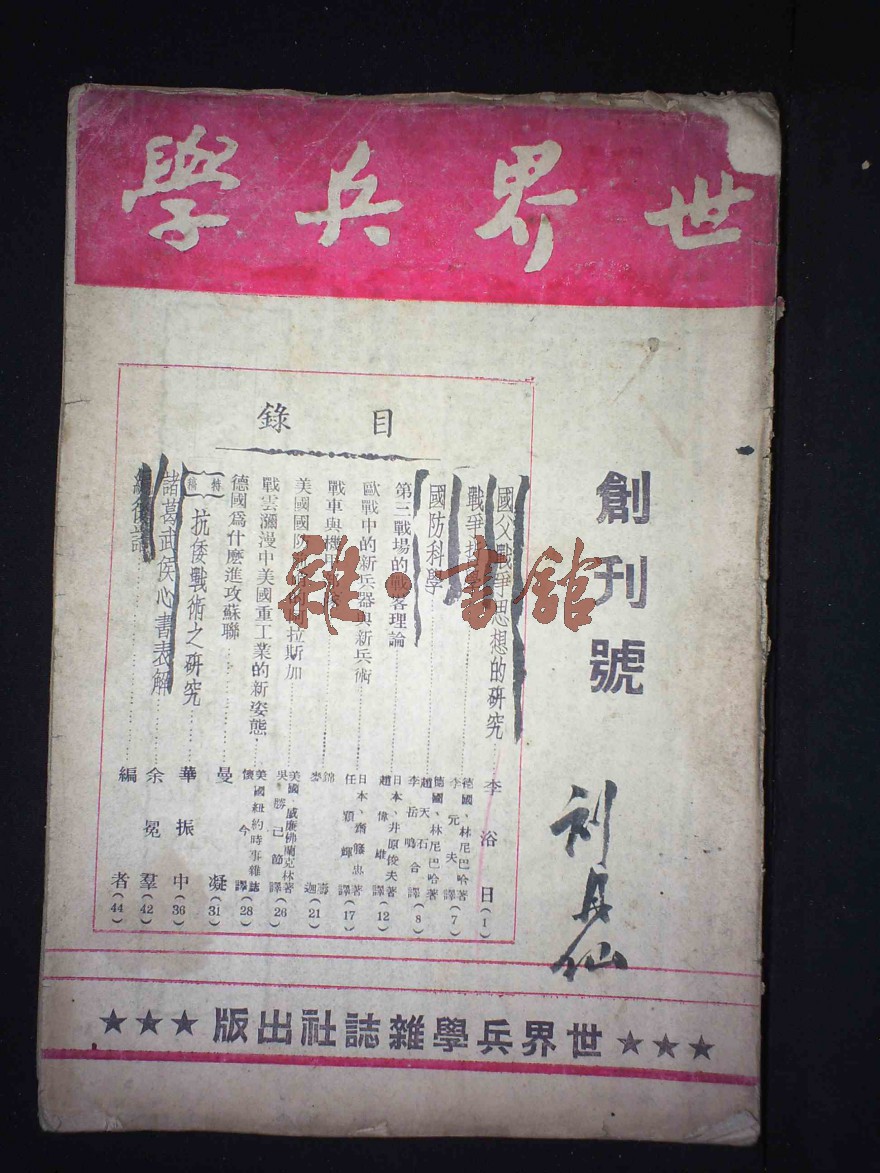 世界兵學
創刊號
目錄
國父戰爭思想的研究……李浴日(1)
戰爭……德國、林尼巴哈著 李元夫譯(7)
國防科學……德國、林尼巴哈著 趙天石 李岳鳴合譯(8)
第三戰場的戰畧理論……日本、井原俊夫著 趙偉雄譯(12)
歐戰中的新兵器與新兵術……日本、齋藤忠著 任穎輝譯(17)
戰車與機甲……錦濤 麥迦(21)
美國國防……阿拉斯加……美國、威廉佛蘭克林著 吳勝己節譯(26)
戰雲瀰漫中美國重工業的新姿態……美國紐約時事雜誌 懷今譯(28)
德國爲什麽進攻蘇聯……曼凝(31)
特稿 抗倭戰術之研究……華振中(36)
諸葛武侯心書表解……余冕羣(42)
編後……編者(44)
世界兵學雜誌社出版
雜·書館